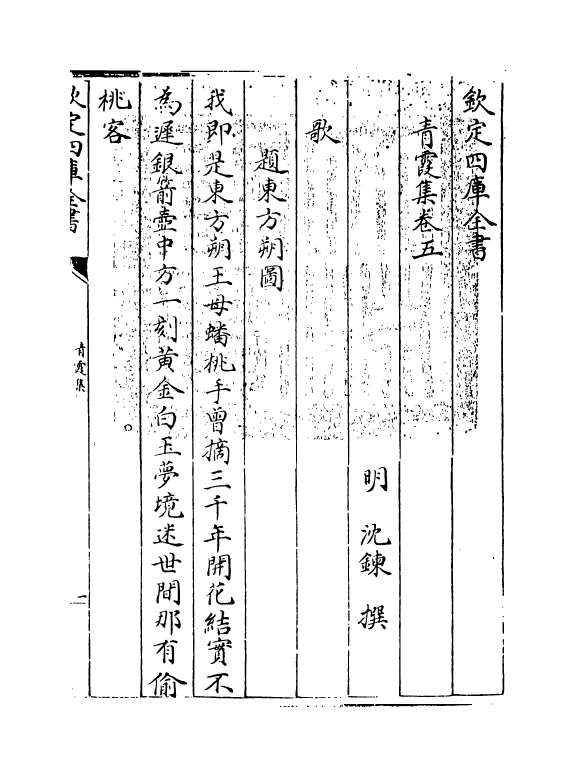 欽定四庫全書
青霞集卷五
明 沈鍊 撰
歌
題東方朔圖
我即是東方朔王母蟠桃手曾摘三千年開花結實不
為遲銀箭壺中方一刻黃金白玉夢境迷世間那有偷
桃客
欽定四庫全書
青霞集
一